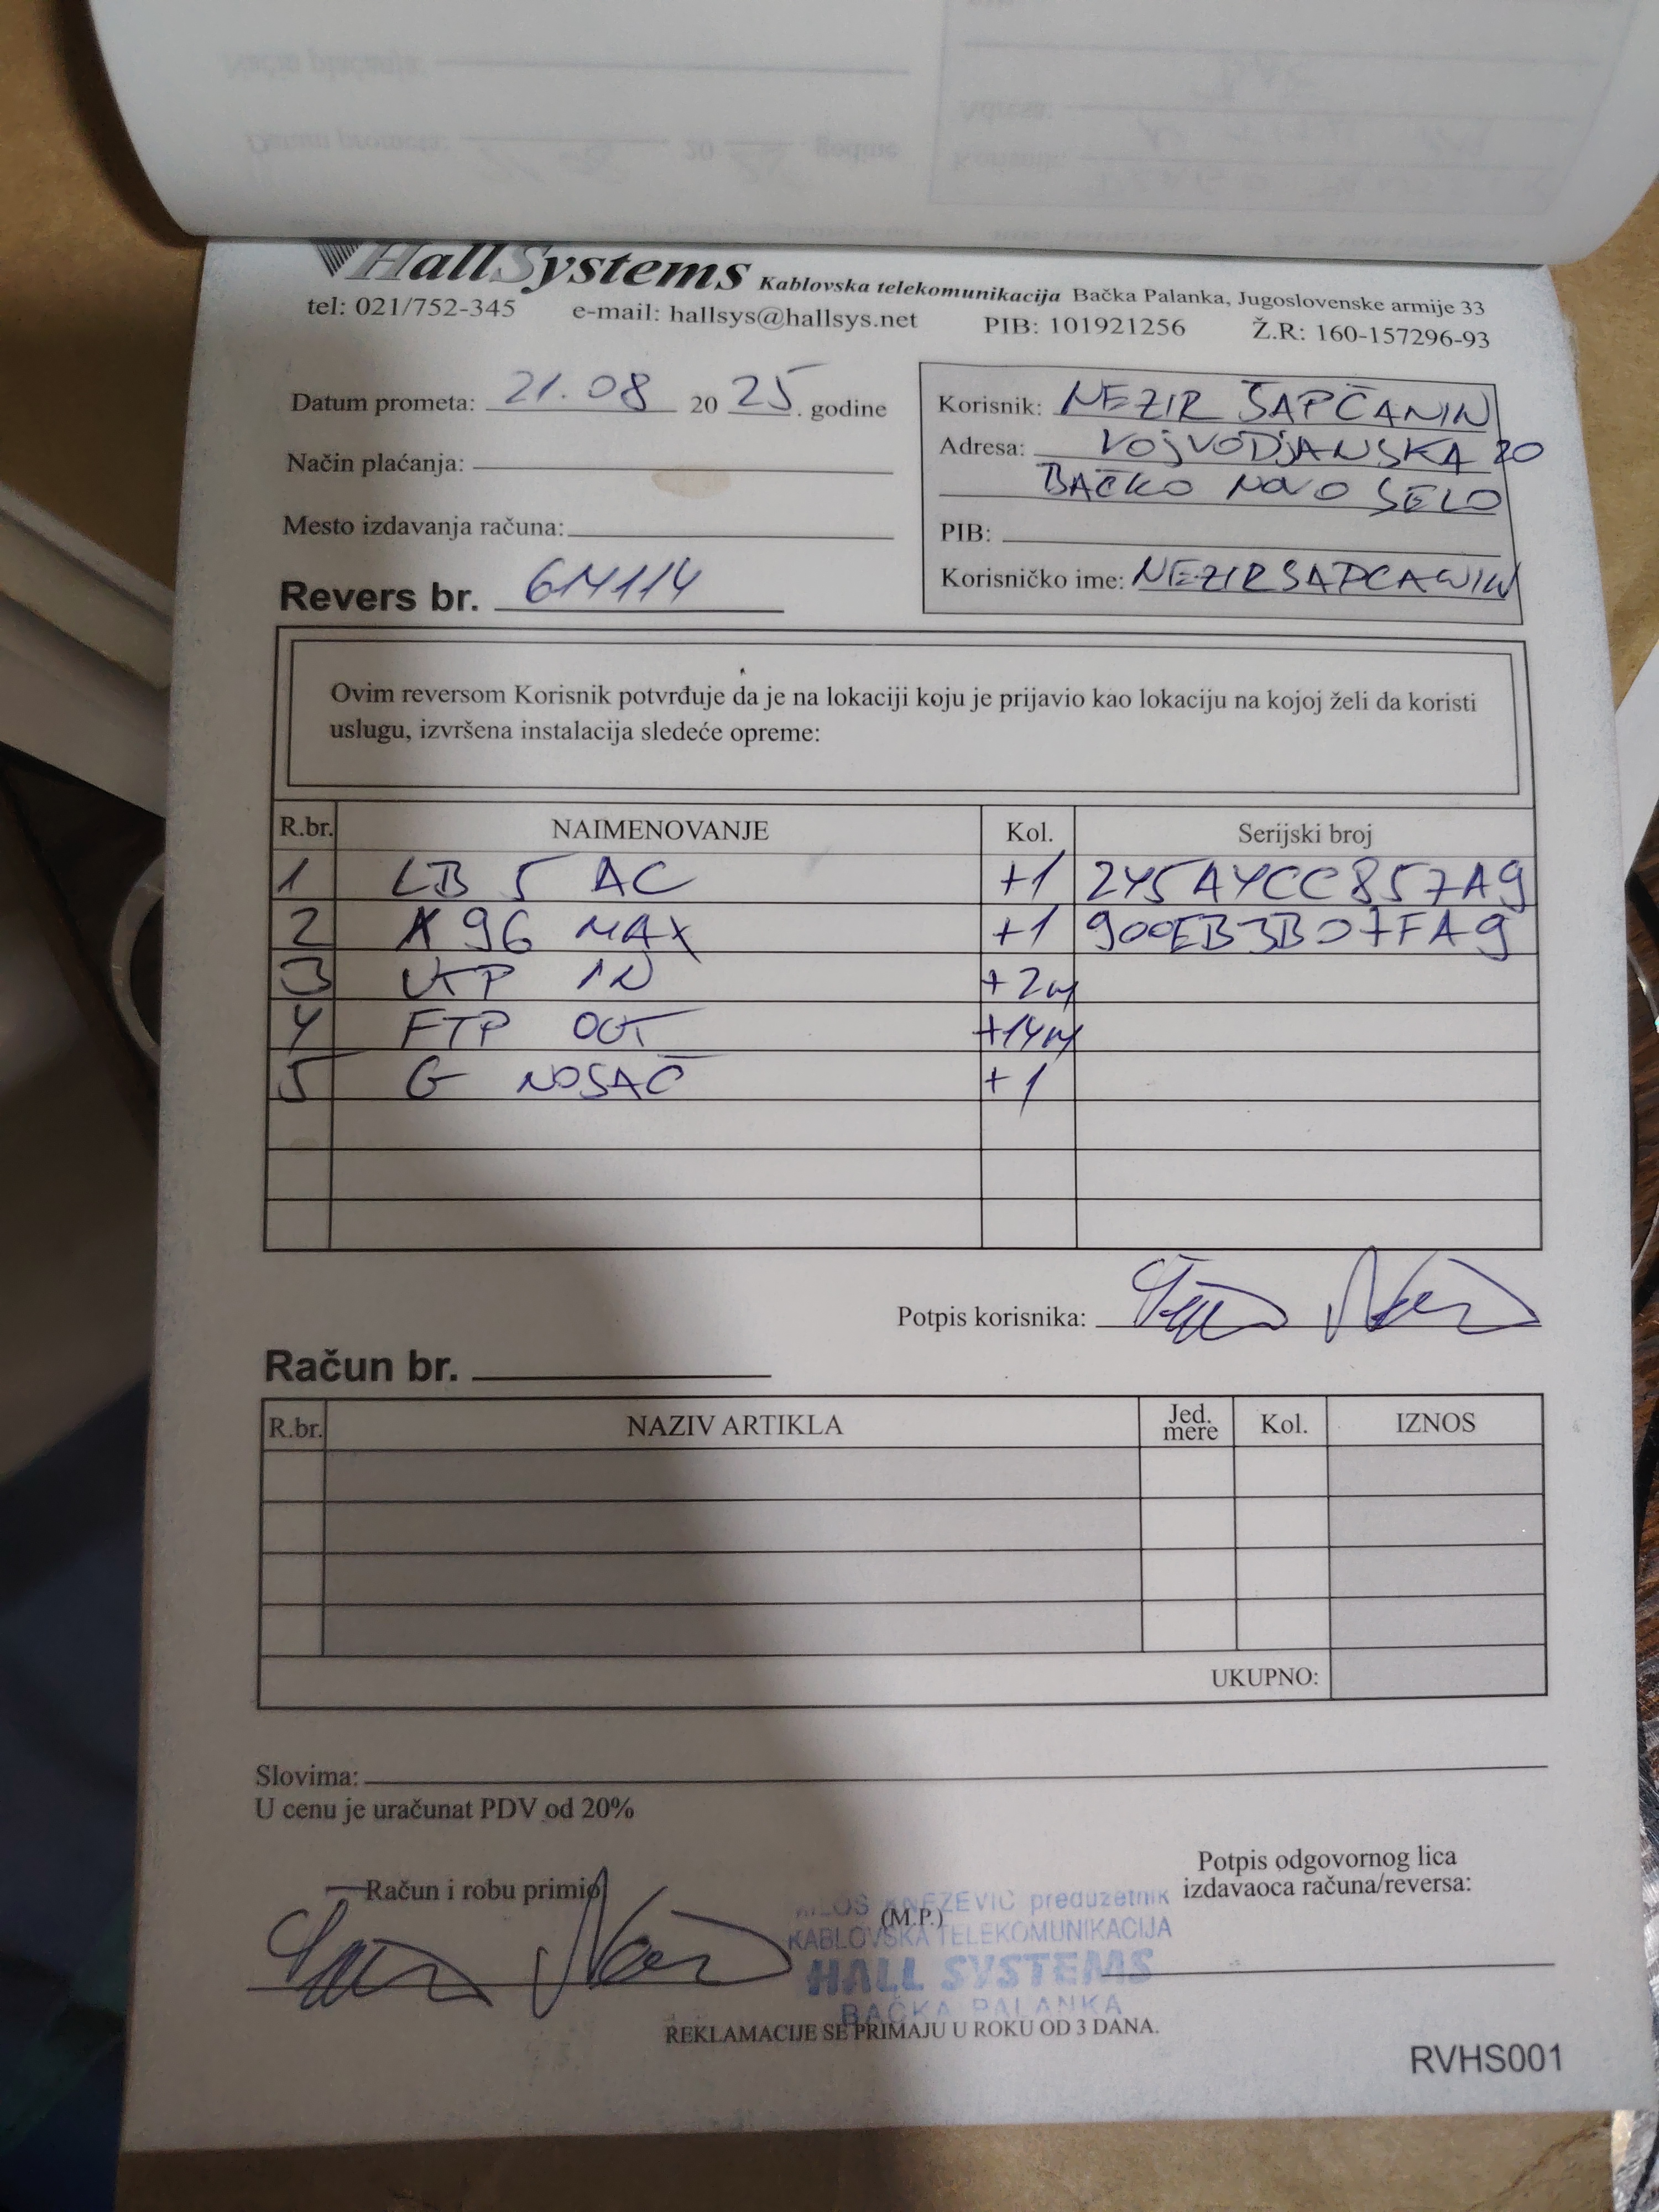 HallSystems Kablovska telekomunikacija Bačka Palanka, Jugoslovenske armije 33
tel: 021/752-345 e-mail: hallsys@hallsys.net PIB: 101921256 Ž.R: 160-157296-93
Datum prometa: 21.08 20 25. godine
Način plaćanja:
Mesto izdavanja računa:
Revers br. 614114
Korisnik: NEZIR ŠAPČANIN
Adresa: VOJVODJANSKA 20
BAČKO NOVO SELO
PIB:
Korisničko ime: NEZIRSAPCANIN
Ovim reversom Korisnik potvrđuje da je na lokaciji koju je prijavio kao lokaciju na kojoj želi da koristi
uslugu, izvršena instalacija sledeće opreme:
R.br. NAIMENOVANJE Kol. Serijski broj
1 LB 5 AC +1 245A4CC857A9
2 X 96 MAX +1 900EB3B07FA9
3 UTP IN +2m
4 FTP OUT +14m
5 G NOSAČ +1
Potpis korisnika:
Račun br.
R.br. NAZIV ARTIKLA Jed. mere Kol. IZNOS
UKUPNO:
Slovima:
U cenu je uračunat PDV od 20%
Račun i robu primio
(M.P.)
Potpis odgovornog lica
izdavaoca računa/reversa:
KNEZEVIC preduzetnik
KABLOVSKA TELEKOMUNIKACIJA
HALL SYSTEMS
BAČKA PALANKA
REKLAMACIJE SE PRIMAJU U ROKU OD 3 DANA.
RVHS001